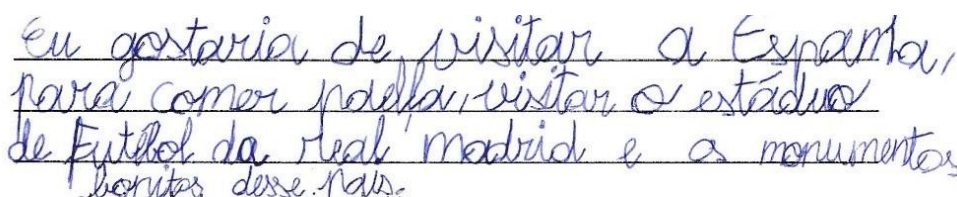 Eu gostaria de visitar a Espanha,
para comer paella, visitar o estádio
de Futebol da real madrid e os monumentos
bonitos desse país.